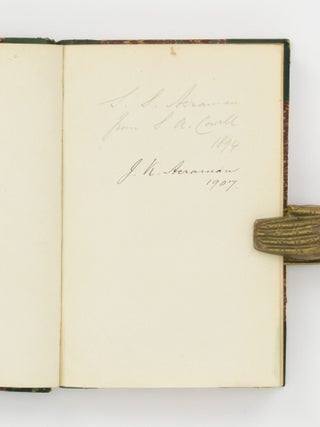 S. S. Acraman
from S. A. Cowell
1894
J. K. Acraman
1907.